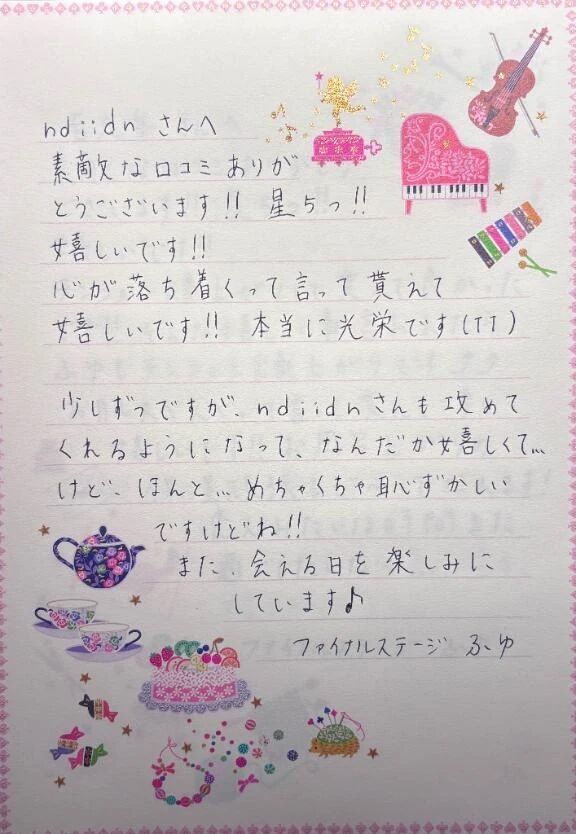 ndiidn さんへ
素敵な口コミありが
とうございます!! 星5っ!!
嬉しいです!!
心が落ち着くって言って貰えて
嬉しいです!! 本当に光栄です(TT)
少しずつですが、ndiidnさんも攻めて
くれるようになって、なんだか嬉しくて…
けど、ほんと… めちゃくちゃ恥ずかしい
ですけどね!!
また、会える日を楽しみに
しています♪
ファイナルステージ ふゆ